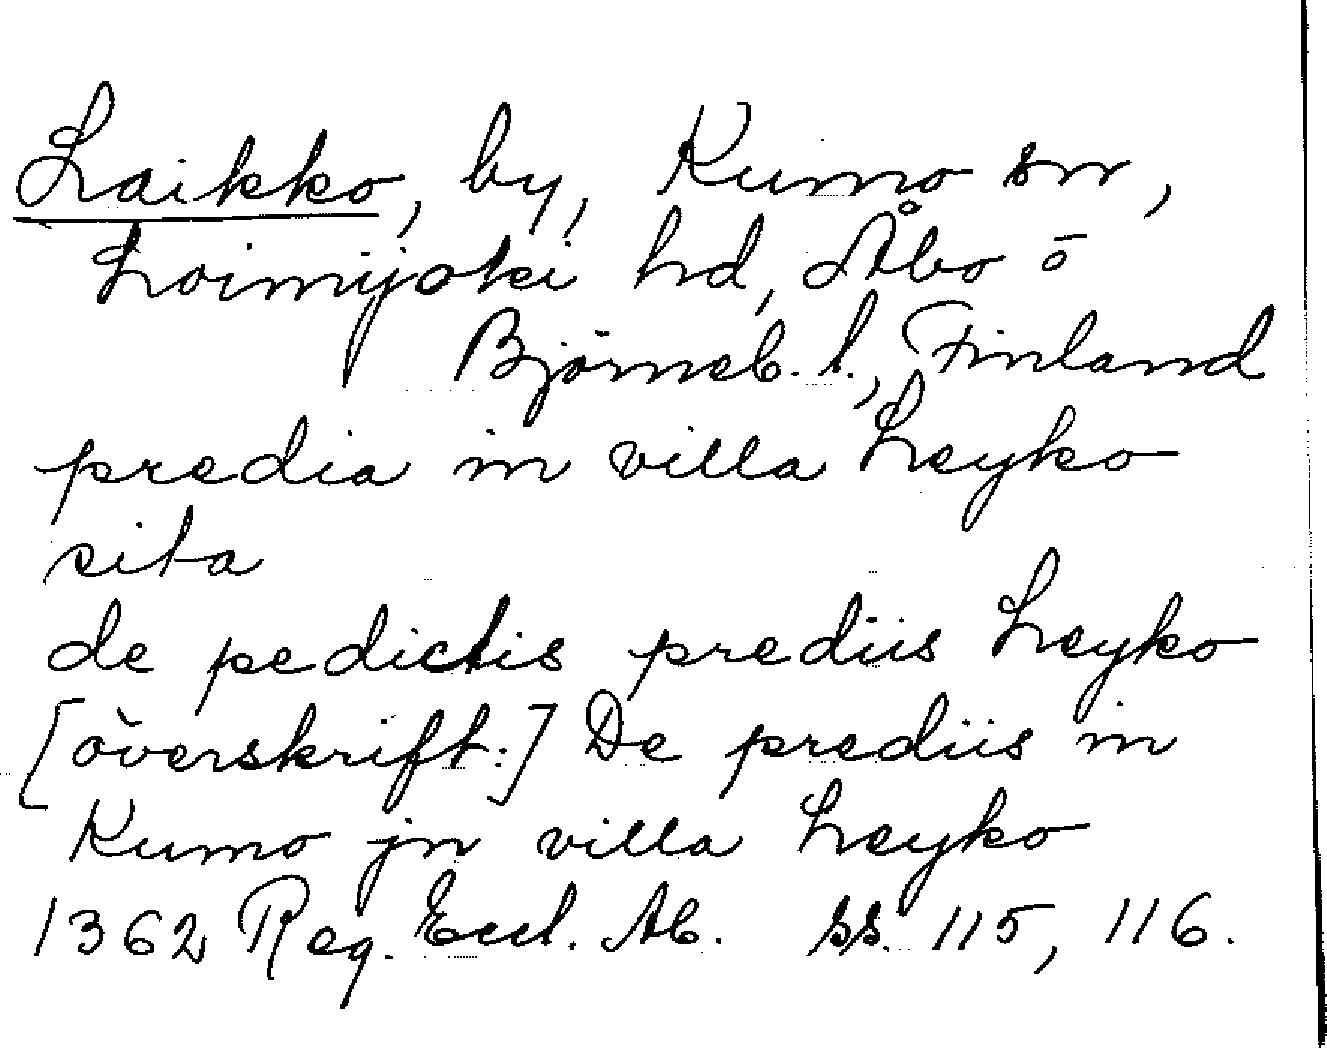 Laikko, by, Kumo sn,
Loimijoki hd, Åbo o
Björneb. l., Finland
predia in villa Leyko
sita
de pedictis prediis Leyko
[överskrift:] De prediis in
Kumo jn villa Leyko
1362 Reg. Eccl. Ab. ss. 115, 116.